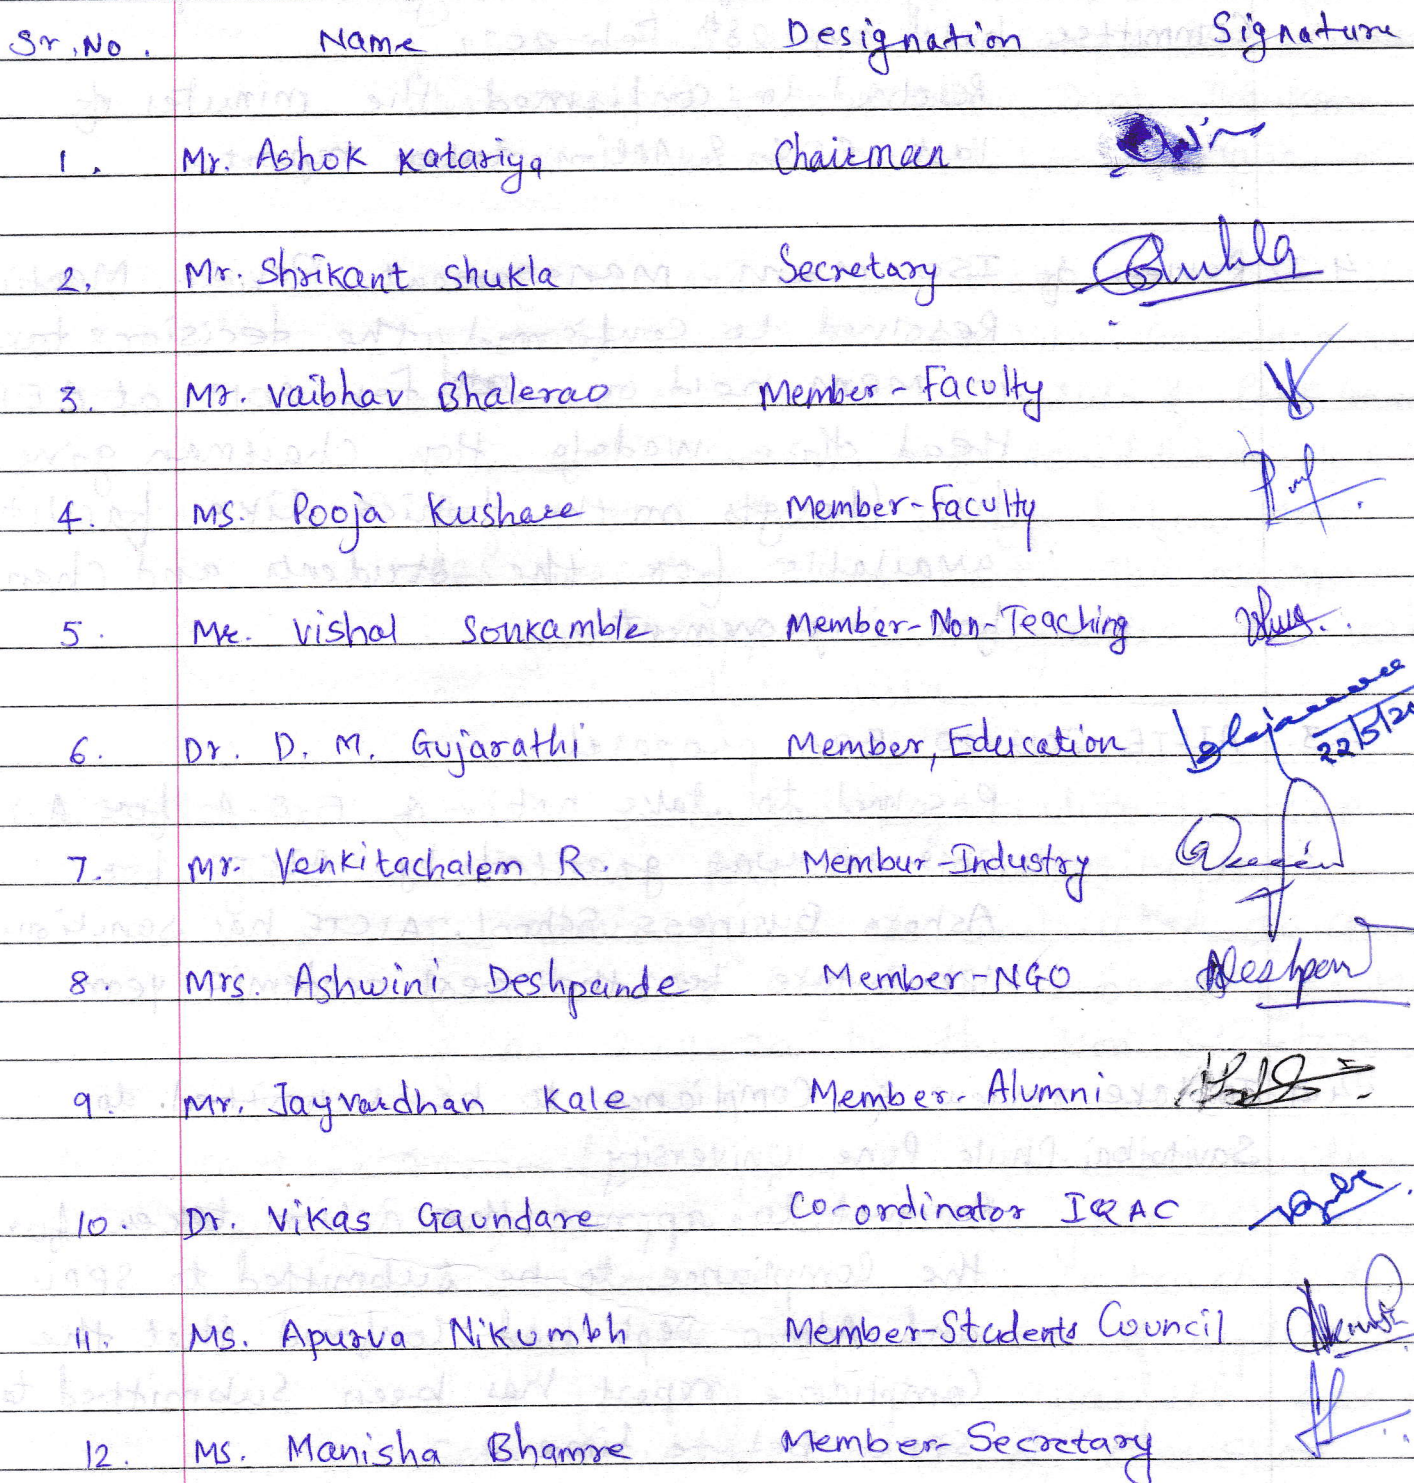 Sr. No. Name Designation Signature
1. Mr. Ashok Katariya Chairman
2. Mr. Shrikant Shukla Secretary Shukla
3. Mr. Vaibhav Bhalerao Member-Faculty
4. Ms. Pooja Kushare Member-Faculty
5. Mr. Vishal Sonkamble Member-Non-Teaching
6. Dr. D. M. Gujarathi Member, Education 22/5/20
7. Mr. Venkitachalem R. Membur-Industry
8. Mrs. Ashwini Deshpande Member-NGO
9. Mr. Jayvardhan Kale Member-Alumni
10. Dr. Vikas Gaundare Co-ordinator IQAC
11. Ms. Apurva Nikumbh Member-Students Council
12. Ms. Manisha Bhamre Member-Secretary